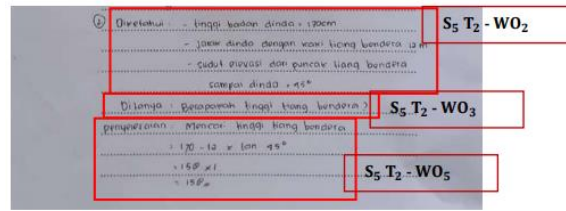 ② Diketahui : - tinggi badan dinda = 170cm
S₅ T₂ - WO₂
- jarak dinda dengan kaki tiang bendera 12 m
- sudut elevasi dari puncak tiang bendera
sampai dinda = 45°
Ditanya : Berapakah tinggi tiang bendera ?
S₅ T₂ - WO₃
penyelesaian : Mencari tinggi tiang bendera
= 170 - 12 x tan 45°
= 158 x 1
= 158
S₅ T₂ - WO₅